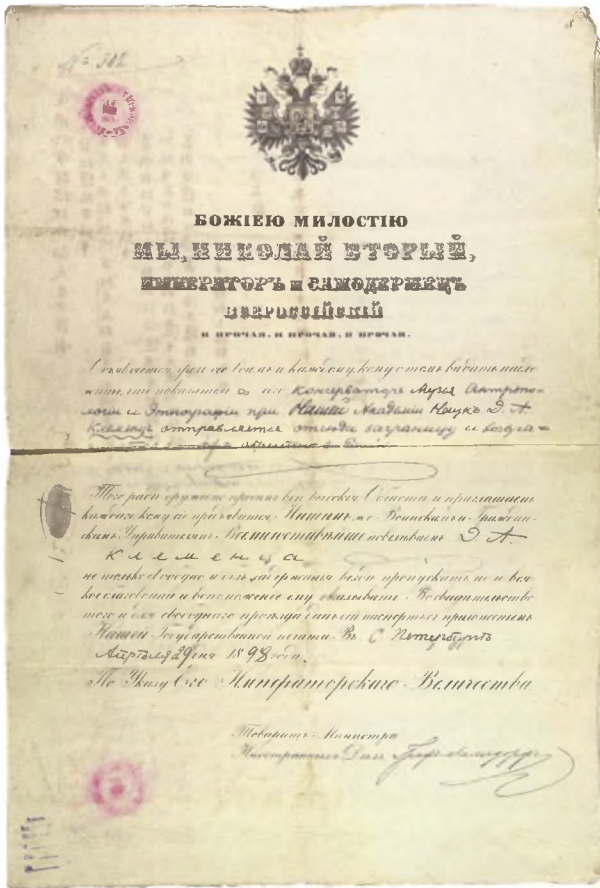 № 302
БОЖІЕЮ МИЛОСТІЮ
МЫ, НИКОЛАЙ ВТОРЫЙ,
ИМПЕРАТОРЪ и САМОДЕРЖЕЦЪ
ВСЕРОССІЙСКІЙ
И ПРОЧАЯ, И ПРОЧАЯ, И ПРОЧАЯ.
Объявляется чрезъ сіе всѣмъ и каждому, кому о томъ вѣдать надле-
житъ, что показатель сего консерваторъ Музея Антропо-
логіи и Этнографіи при Нашей Академіи Наукъ Д. А.
Клеменцъ отправляется отсюда заграницу и
Того ради дружебно просимъ всѣ высокія Области и приглашаемъ
каждаго кому сіе предъявится. Нашимъ же Воинскимъ и Граждан-
скимъ Управителямъ Всемилостивѣйше повелѣваемъ Д. А.
Клеменца
не только свободно и безъ задержанія вездѣ пропускать, но и вся-
кое благоволеніе и вспоможеніе ему оказывать. Во свидѣтельство
того и для свободнаго проѣзда данъ сей паспортъ съ приложеніемъ
Нашей Государственной печати. Въ С. Петербургѣ
Апрѣля 29 дня 1898 года.
По Указу Его Императорскаго Величества
Товарищъ Министра
Иностранныхъ Дѣлъ Графъ Ламздорфъ